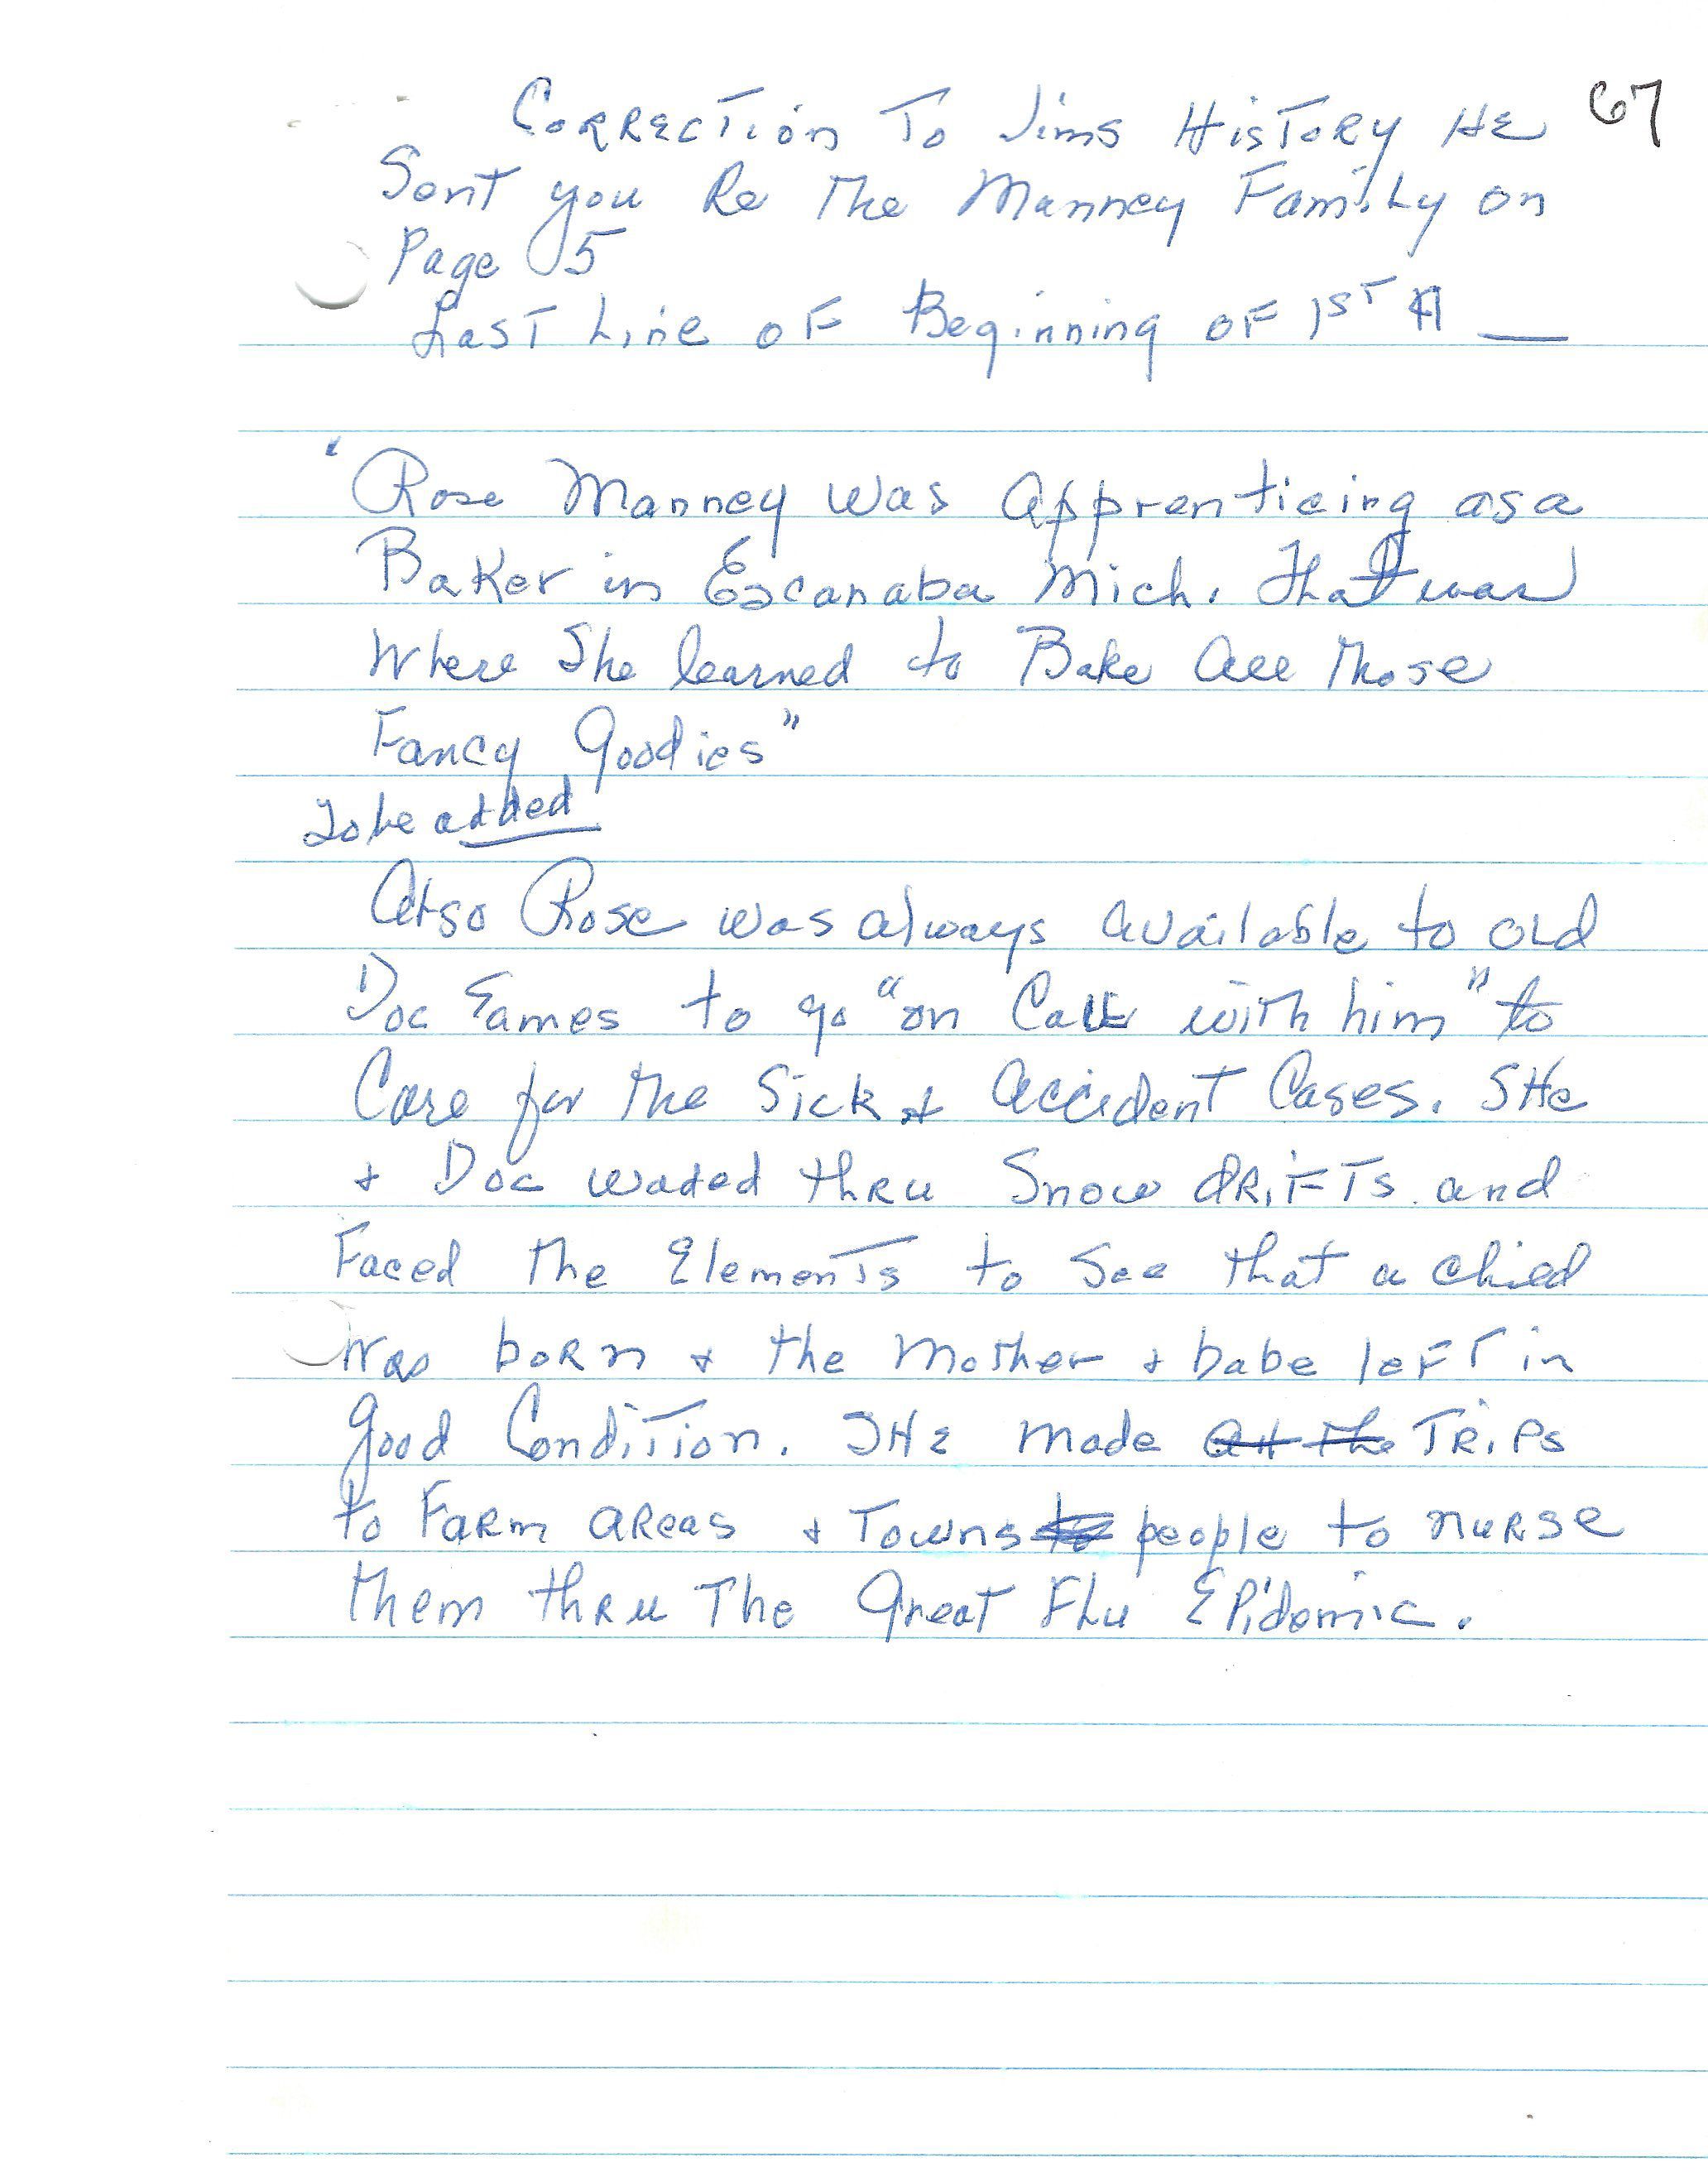 Correction To Jims History He 67
Sent you Re the Manney Family on
Page 5
Last Line of Beginning of 1st ¶ __
"Rose Manney was apprenticing as a
Baker in Escanaba Mich. That was
Where She learned to Bake all those
Fancy Goodies"
To be added
Also Rose was always available to old
Doc Eames to go "on Call with him" to
Care for the Sick + accident Cases. She
+ Doc waded thru Snow drifts and
Faced the Elements to See that a child
was born + the Mother + babe left in
good Condition. She made at the Trips
to Farm areas + Towns people to nurse
them thru The Great Flu Epidemic.